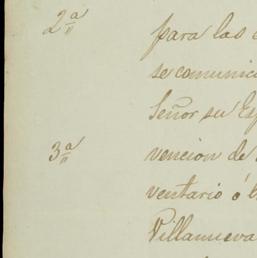 2ª para las
se comunic
Señor su Es
3ª vencion de
ventario ó
Villanueva